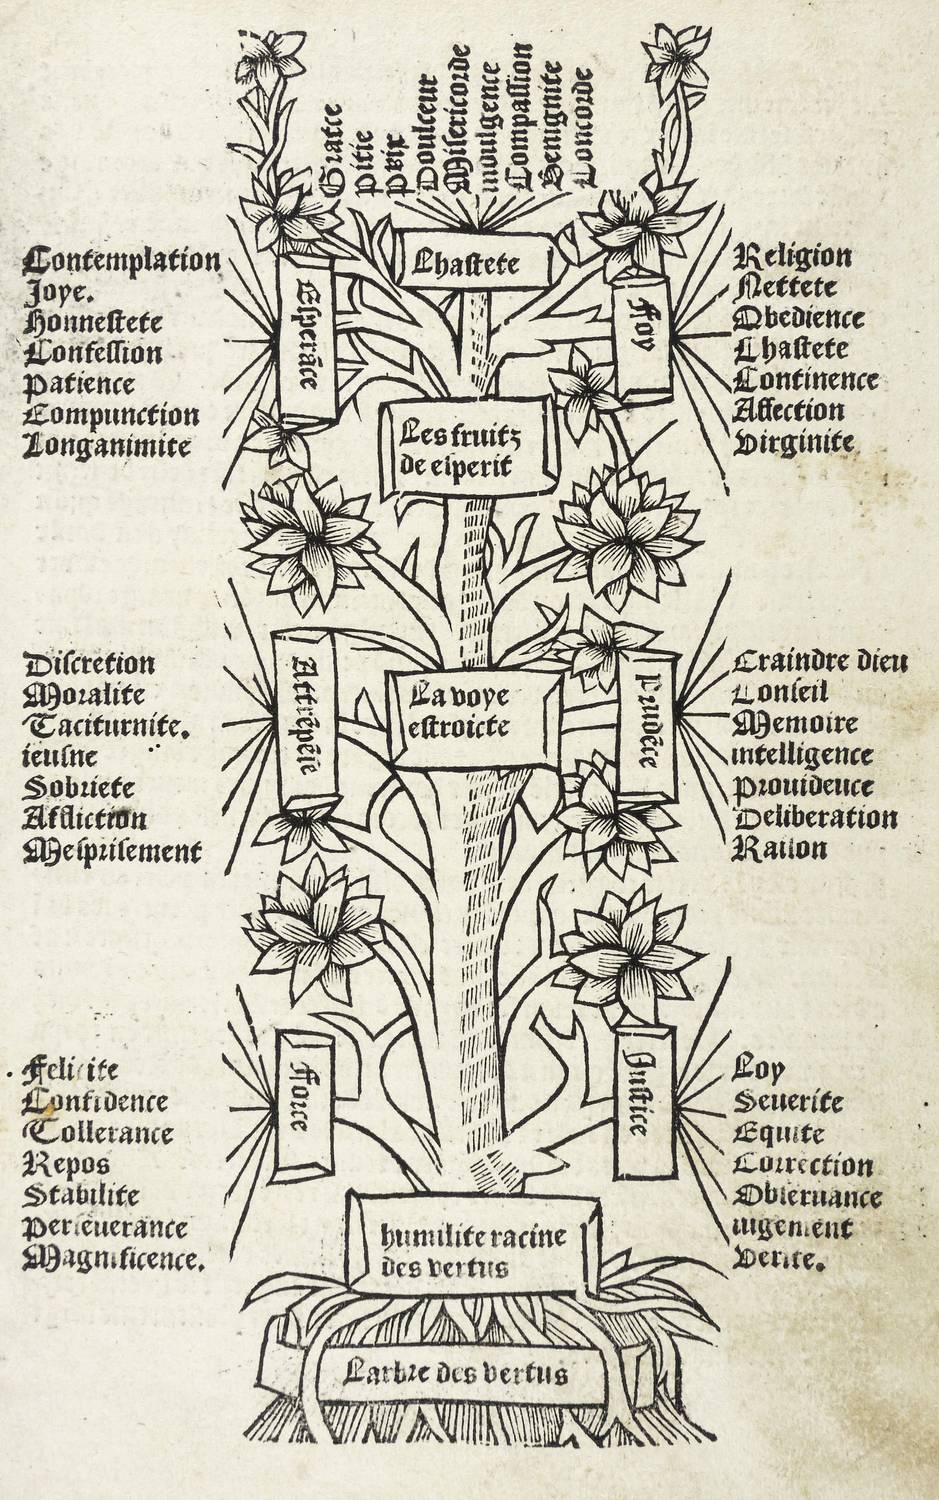 Gratce
Pitie
Paix
Doulceur
Misericorde
indulgence
Compassion
Benignite
Concorde
Chastete
Contemplation
Joye.
Honnestete
Confession
Patience
Compunction
Longanimite
Esperāce
Foy
Religion
Nettete
Obedience
Chastete
Continence
Affection
Virginite
Les fruitz
de esperit
Discretion
Moralite
Taciturnite.
ieusne
Sobriete
Affliction
Mesprisement
Attrēpēse
La voye
estroicte
Prudēce
Craindre dieu
Conseil
Memoire
intelligence
Prouidence
Deliberation
Raison
Felicite
Confidence
Tollerance
Repos
Stabilite
Perseuerance
Magnificence.
Force
Justice
Loy
Seuerite
Equite
Correction
Obseruance
iugement
Verite.
humilite racine
des vertus
Larbre des vertus